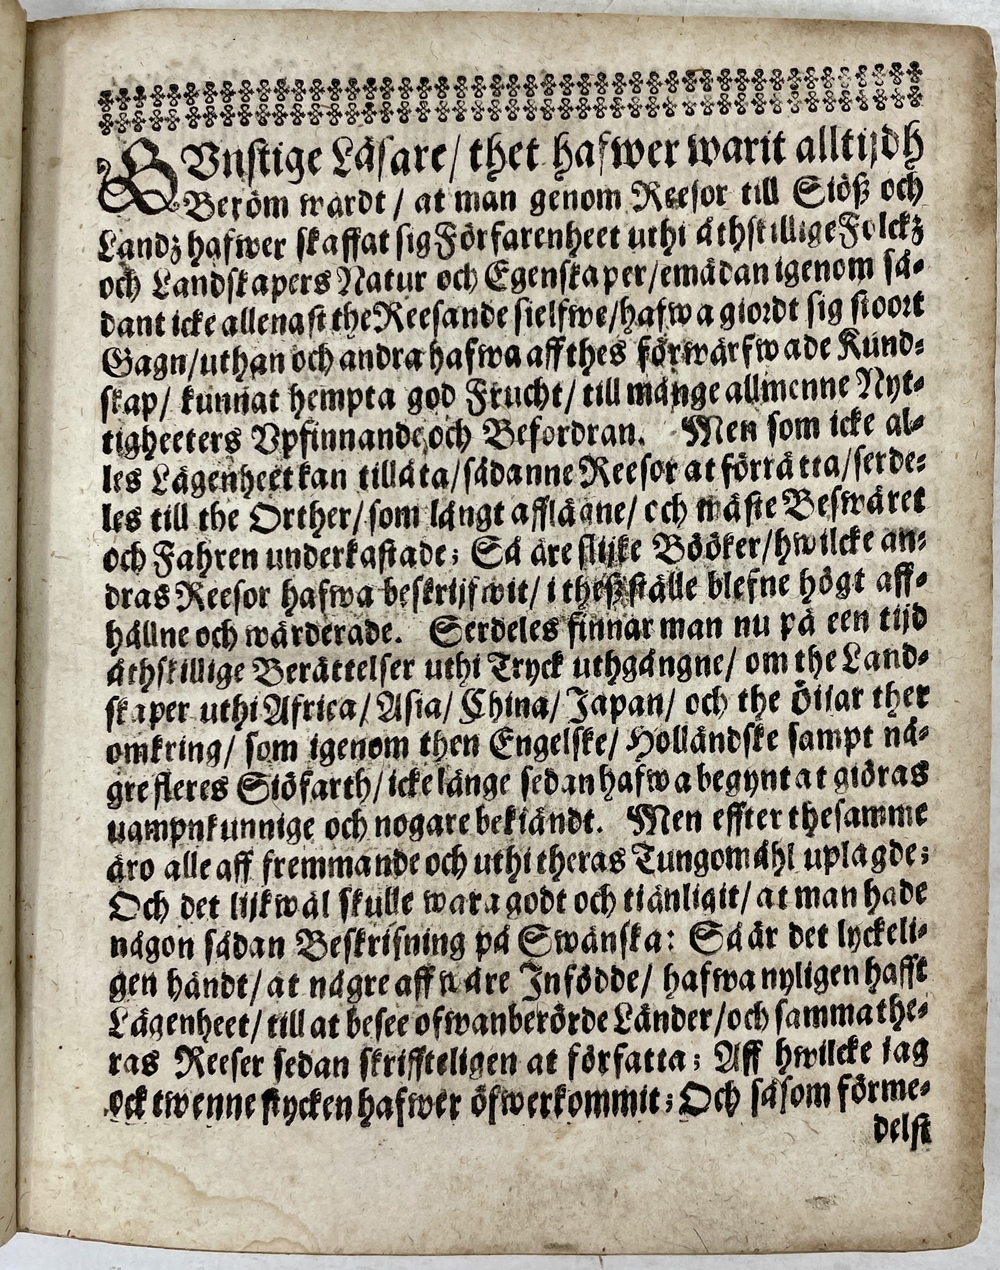 GUnstige Läsare/ thet hafwer warit alltijdh
Beröm wärdt / at man genom Reesor till Siöß och
Landz hafwer skaffat sig Förfarenheet uthi åthskillige Folckz
och Landskapers Natur och Egenskaper/emädan igenom så-
dant icke allenast the Reesande sielfwe/hafwa giordt sig stoort
Gagn/uthan och andra hafwa aff thes förwärfwade Kund-
skap/ kunnat hempta god Frucht/ till månge allmenne Nyt-
tigheeters Vpfinnande och Befordran. Men som icke al-
les Lägenheet kan tillåta/sådanne Reesor at förrätta/serde-
les till the Orther/som långt afflägne/ och mäste Beswäret
och Fahren underkastade; Så äre slijke Bööker/hwilcke an-
dras Reesor hafwa beskrijfwit/ i theß ställe blefne högt aff-
hållne och wärderade. Serdeles finnar man nu på een tijd
åthskillige Berättelser uthi Tryck uthgångne/ om the Land-
skaper uthi Africa/ Asia/ China/ Japan/ och the öijar ther
omkring/ som igenom then Engelske/ Holländske sampt nå-
gre fleres Siöfarth/icke länge sedan hafwa begynt at giöras
nampnkunnige och nogare bekiändt. Men effter the samme
äro alle aff fremmande och uthi theras Tungomåhl uplagde;
Och det lijkwäl skulle wara godt och tiänligit/ at man hade
någon sådan Beskrifning på Swänska: Så är det lyckeli-
gen händt/at någre aff wåre Infödde/ hafwa nyligen hafft
Lägenheet/till at besee ofwanberörde Länder/och samma the-
ras Reeser sedan skriffteligen at författa; Aff hwilcke iag
ock twenne stycken hafwer öfwerkommit; Och såsom förme-
delst